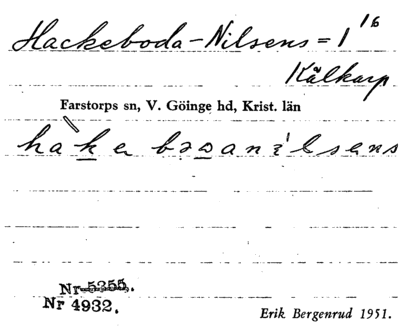 Hackeboda-Nilsens = 1/16
Kålkarp
Farstorps sn, V. Göinge hd, Krist. län
Nr 5255.
Nr 4932.
Erik Bergenrud 1951.